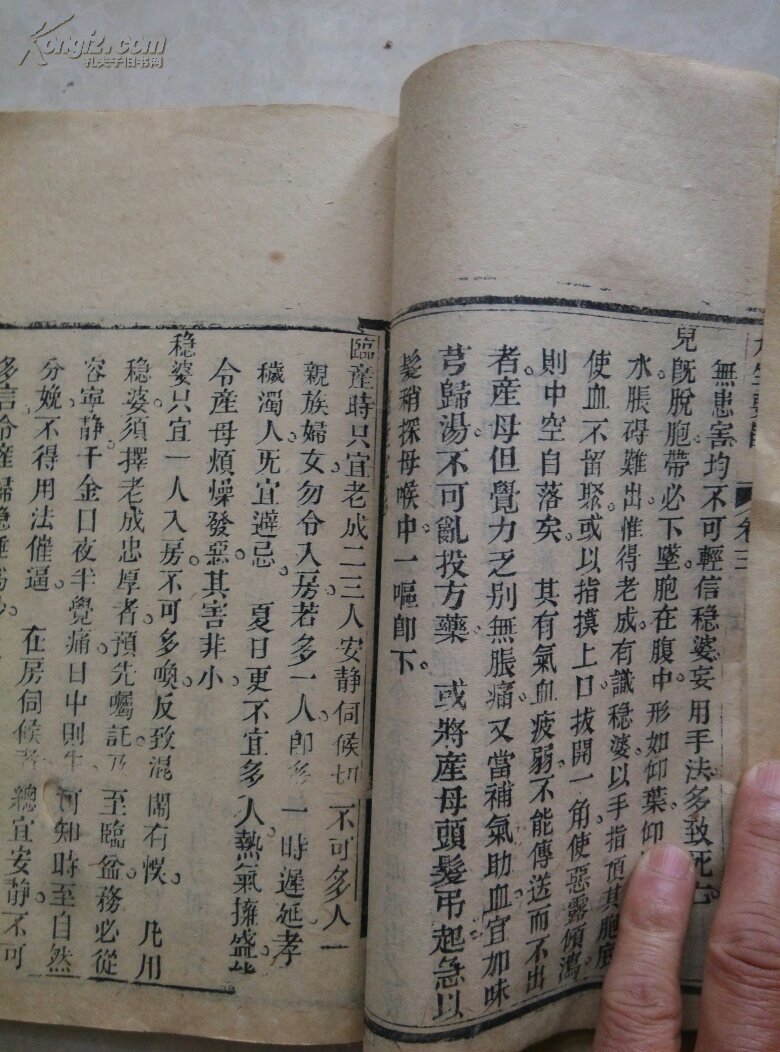 Kongfz.com
孔夫子旧书网
卷三
無患害均不可輕信穩婆妄用手法多致死亡
兒旣脫胞帶必下墜胞在腹中形如仰葉仰
水脹碍難出惟得老成有識穩婆以手指頂其胞底
使血不留聚或以指摸上口拔開一角使惡露傾瀉
則中空自落矣　其有氣血疲弱不能傳送而不出
者產母但覺力乏别無脹痛又當補氣助血宜加味
芎歸湯不可亂投方藥　或將產母頭髮吊起急以
髮稍探母喉中一嘔卽下
臨產時只宜老成二三人安静伺候切不可多人一
親族婦女勿令入房若多一人卽多一時遲延孝
穢濁人旡宜避忌　夏日更不宜多人熱氣擁盛
令產母煩燥發惡其害非小
穩婆只宜一人入房不可多喚反致混鬧有悞　凡用
穩婆須擇老成忠厚者預先囑託乃至臨盆務必從
容寧静千金曰夜半覺痛日中則生可知時至自然
分娩不得用法催逼　在房伺候者總宜安静不可
多言令產婦